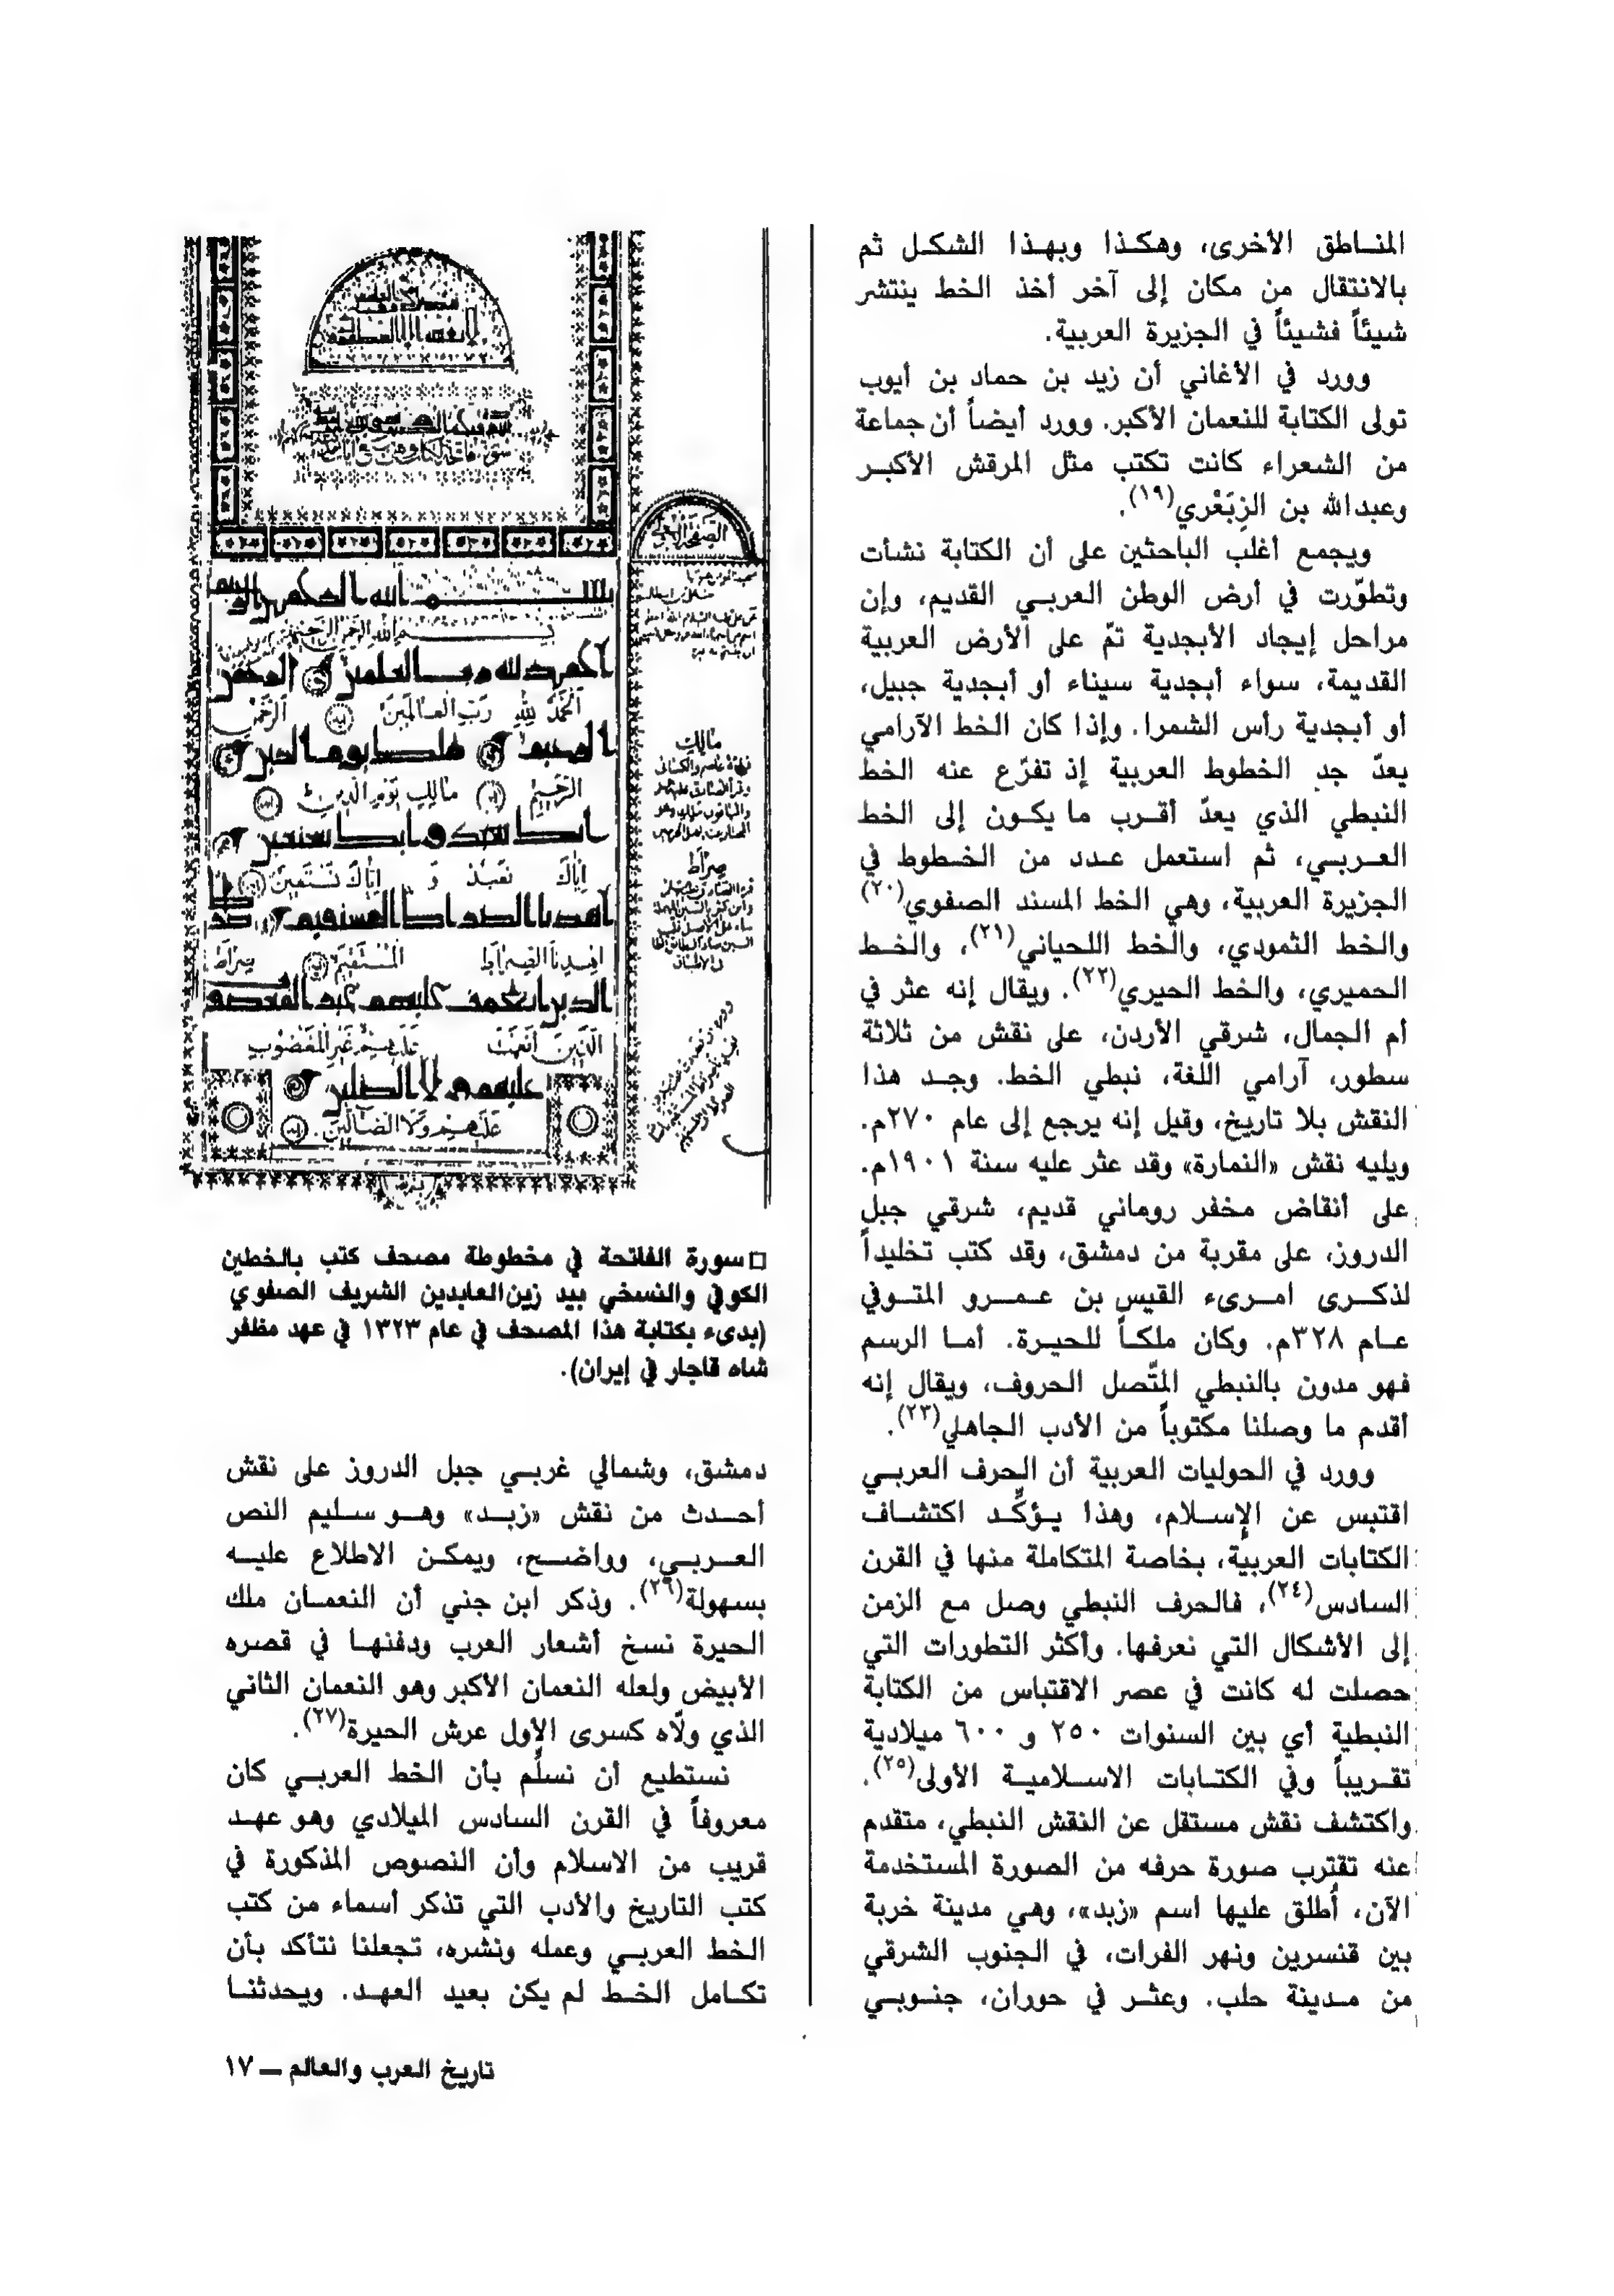 المناطق الأخرى، وهكذا وبهذا الشكل ثم
بالانتقال من مكان إلى آخر أخذ الخط ينتشر
شيئاً فشيئاً في الجزيرة العربية.
وورد في الأغاني أن زيد بن حماد بن أيوب
تولى الكتابة للنعمان الأكبر. وورد أيضاً أن جماعة
من الشعراء كانت تكتب مثل المرقش الأكبر
وعبدالله بن الزِبَعْري(١٩).
ويجمع أغلب الباحثين على أن الكتابة نشأت
وتطوّرت في أرض الوطن العربي القديم، وإن
مراحل إيجاد الأبجدية تمّ على الأرض العربية
القديمة، سواء أبجدية سيناء أو أبجدية جبيل،
أو أبجدية رأس الشمرا. وإذا كان الخط الآرامي
يعدّ جد الخطوط العربية إذ تفرّع عنه الخط
النبطي الذي يعدّ أقرب ما يكون إلى الخط
العربي، ثم استعمل عدد من الخطوط في
الجزيرة العربية، وهي الخط المسند الصفوي(٢٠)
والخط الثمودي، والخط اللحياني(٢١)، والخط
الحميري، والخط الحيري(٢٢). ويقال إنه عثر في
أم الجمال، شرقي الأردن، على نقش من ثلاثة
سطور، آرامي اللغة، نبطي الخط. وجد هذا
النقش بلا تاريخ، وقيل إنه يرجع إلى عام ٢٧٠م.
ويليه نقش «النمارة» وقد عثر عليه سنة ١٩٠١م.
على أنقاض مخفر روماني قديم، شرقي جبل
الدروز، على مقربة من دمشق، وقد كتب تخليداً
لذكرى امرىء القيس بن عمرو المتوفي
عام ٣٢٨م. وكان ملكاً للحيرة. أما الرسم
فهو مدون بالنبطي المتّصل الحروف، ويقال إنه
أقدم ما وصلنا مكتوباً من الأدب الجاهلي(٢٣).
وورد في الحوليات العربية أن الحرف العربي
اقتبس عن الإسلام، وهذا يؤكّد اكتشاف
الكتابات العربية، بخاصة المتكاملة منها في القرن
السادس(٢٤)، فالحرف النبطي وصل مع الزمن
إلى الأشكال التي نعرفها. وأكثر التطورات التي
حصلت له كانت في عصر الاقتباس من الكتابة
النبطية أي بين السنوات ٢٥٠ و ٦٠٠ ميلادية
تقريباً وفي الكتابات الاسلامية الأولى(٢٥).
واكتشف نقش مستقل عن النقش النبطي، متقدم
عنه تقترب صورة حرفه من الصورة المستخدمة
الآن، أُطلق عليها اسم «زبد»، وهي مدينة خربة
بين قنسرين ونهر الفرات، في الجنوب الشرقي
من مدينة حلب. وعثر في حوران، جنوبي
بسم الله الرحمن الرحيم
الحمد لله رب العالمين الرحمن
الْحَمْدُ لِلّٰهِ رَبِّ الْعَالَمِينَ الرَّحْمٰنِ
الرَّحِيمِ مَالِكِ يَوْمِ الدِّينِ
اِيَّاكَ نَعْبُدُ وَ اِيَّاكَ نَسْتَعِينُ
اِهْدِنَا الصِّرَاطَ الْمُسْتَقِيمَ صِرَاطَ
الَّذِينَ أَنْعَمْتَ عَلَيْهِمْ غَيْرِ الْمَغْضُوبِ
عليهم ولا الضالين
عَلَيْهِمْ وَلَا الضَّالِّينَ
مَالِكِ
صِرَاطَ
□ سورة الفاتحة في مخطوطة مصحف كتب بالخطين
الكوفي والنسخي بيد زين العابدين الشريف الصفوي
(بدىء بكتابة هذا المصحف في عام ١٣٢٣ في عهد مظفر
شاه قاجار في إيران).
دمشق، وشمالي غربي جبل الدروز على نقش
أحدث من نقش «زبد» وهو سليم النص
العربي، وواضح، ويمكن الاطلاع عليه
بسهولة(٢٦). وذكر ابن جني أن النعمان ملك
الحيرة نسخ أشعار العرب ودفنها في قصره
الأبيض ولعله النعمان الأكبر وهو النعمان الثاني
الذي ولّاه كسرى الأول عرش الحيرة(٢٧).
نستطيع أن نسلّم بأن الخط العربي كان
معروفاً في القرن السادس الميلادي وهو عهد
قريب من الاسلام وأن النصوص المذكورة في
كتب التاريخ والأدب التي تذكر أسماء من كتب
الخط العربي وعمله ونشره، تجعلنا نتأكد بأن
تكامل الخط لم يكن بعيد العهد. ويحدثنا
تاريخ العرب والعالم — ١٧